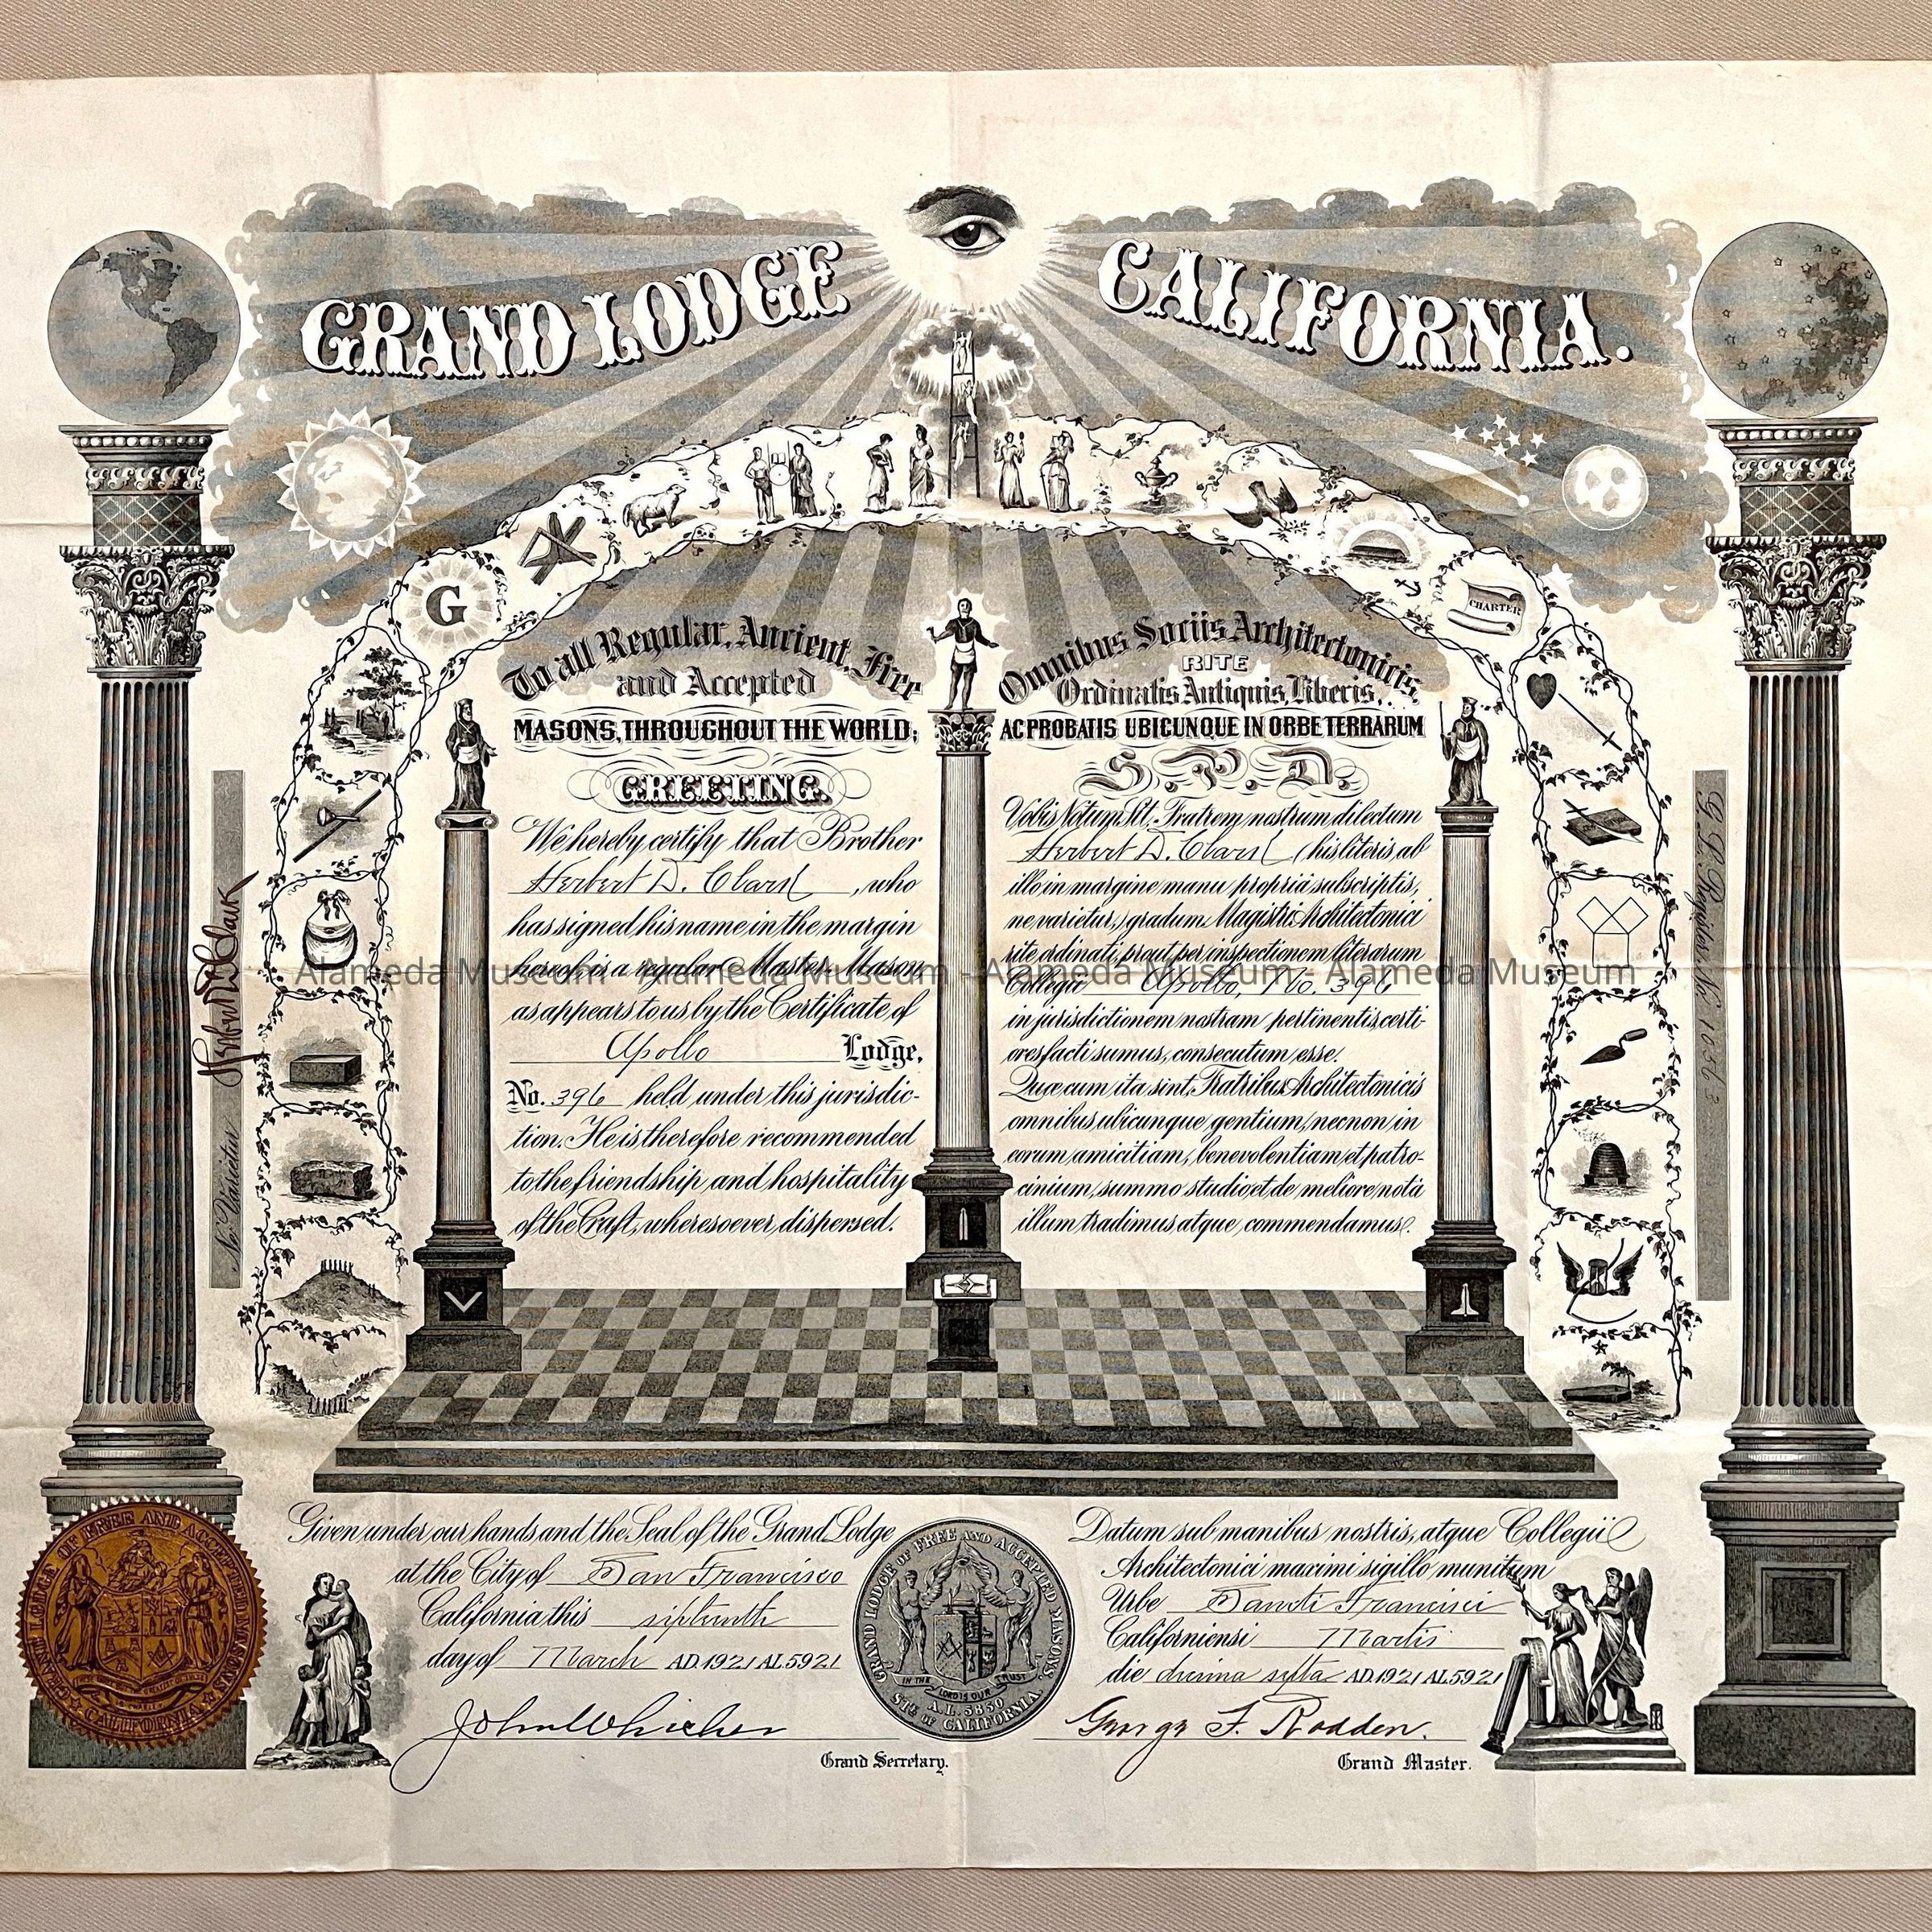 GRAND LODGE CALIFORNIA.
G
CHARTER
To all Regular, Ancient, Free
and Accepted
MASONS, THROUGHOUT THE WORLD;
GREETING.
We hereby certify that Brother
Herbert D. Clark, who
has signed his name in the margin
hereof is a regular Master Mason
as appears to us by the Certificate of
Apollo Lodge,
No. 396 held under this jurisdic-
tion. He is therefore recommended
to the friendship and hospitality
of the Craft, wheresoever dispersed.
Omnibus Sociis Architectonicis
RITE
Ordinatis Antiquis, Liberis,
AC PROBATIS UBICUNQUE IN ORBE TERRARUM
S. P. D.
Vobis Notum Sit, Fratrem nostrum dilectum
Herbert D. Clark (his literis, ab
illo in margine manu propriâ subscriptis,
ne varietur,) gradum Magistri Architectonici
rite ordinati, prout per inspectionem literarum
Collegii Apollo, No. 396
in jurisdictionem nostram pertinentis, certi-
ores facti sumus, consecutum esse.
Quæ cum ita sint, Fratribus Architectonicis
omnibus ubicunque gentium, necnon in
eorum amicitiam, benevolentiam et patro-
cinium, summo studio et de meliore notâ
illum tradimus atque commendamus.
Herbert D. Clark
Ne Varietur
G. L. Register No. 10563
Alameda Museum - Alameda Museum - Alameda Museum - Alameda Museum
Given under our hands and the Seal of the Grand Lodge
at the City of San Francisco
California this sixteenth
day of March AD.1921 AL5921
John Whicher
Grand Secretary.
Datum sub manibus nostris, atque Collegii
Architectonici maximi sigillo munitum
Urbe Sancti Francisci
Californiensi Martis
die decima sexta AD.1921 AL5921
George F. Rodden.
Grand Master.
GRAND LODGE OF FREE AND ACCEPTED MASONS
CALIFORNIA
GRAND LODGE OF FREE AND ACCEPTED MASONS,
IN THE LORD IS OUR TRUST
A.L. 5850
STE OF CALIFORNIA.